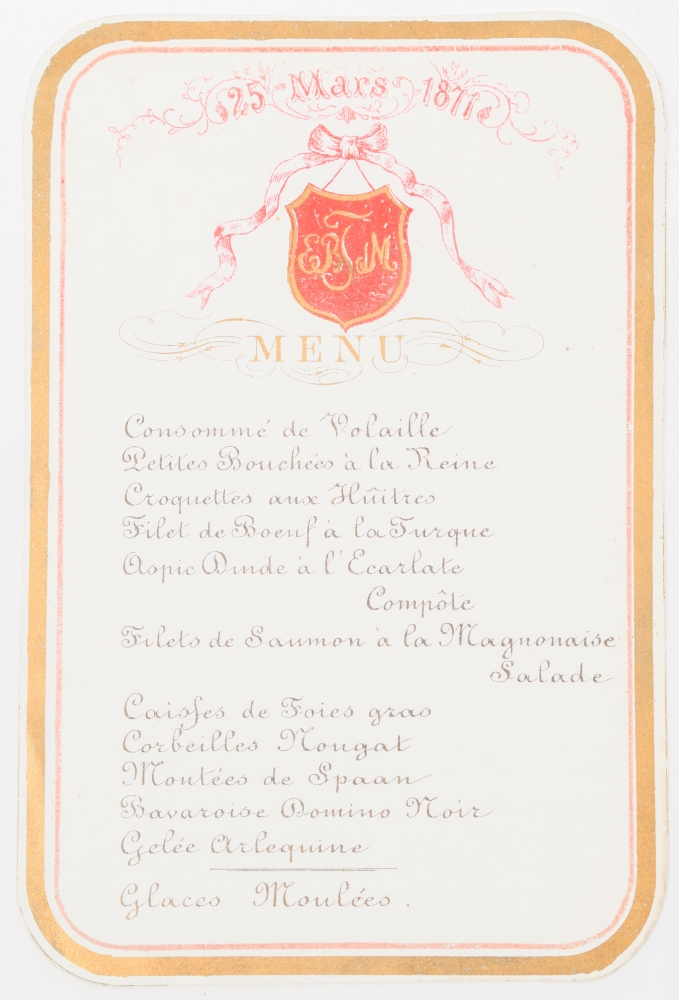 25 Mars 1871
EB JT M
MENU
Consommé de Volaille
Petites Bouchées à la Reine
Croquettes aux Hûitres
Filet de Boeuf à la Turque
Aspic Dinde à l'Ecarlate
Compôte
Filets de Saumon à la Magnonaise
Salade
Caisses de Foies gras
Corbeilles Nougat
Montées de Spaan
Bavaroise Domino Noir
Gelée Arlequine
Glaces Moulées.